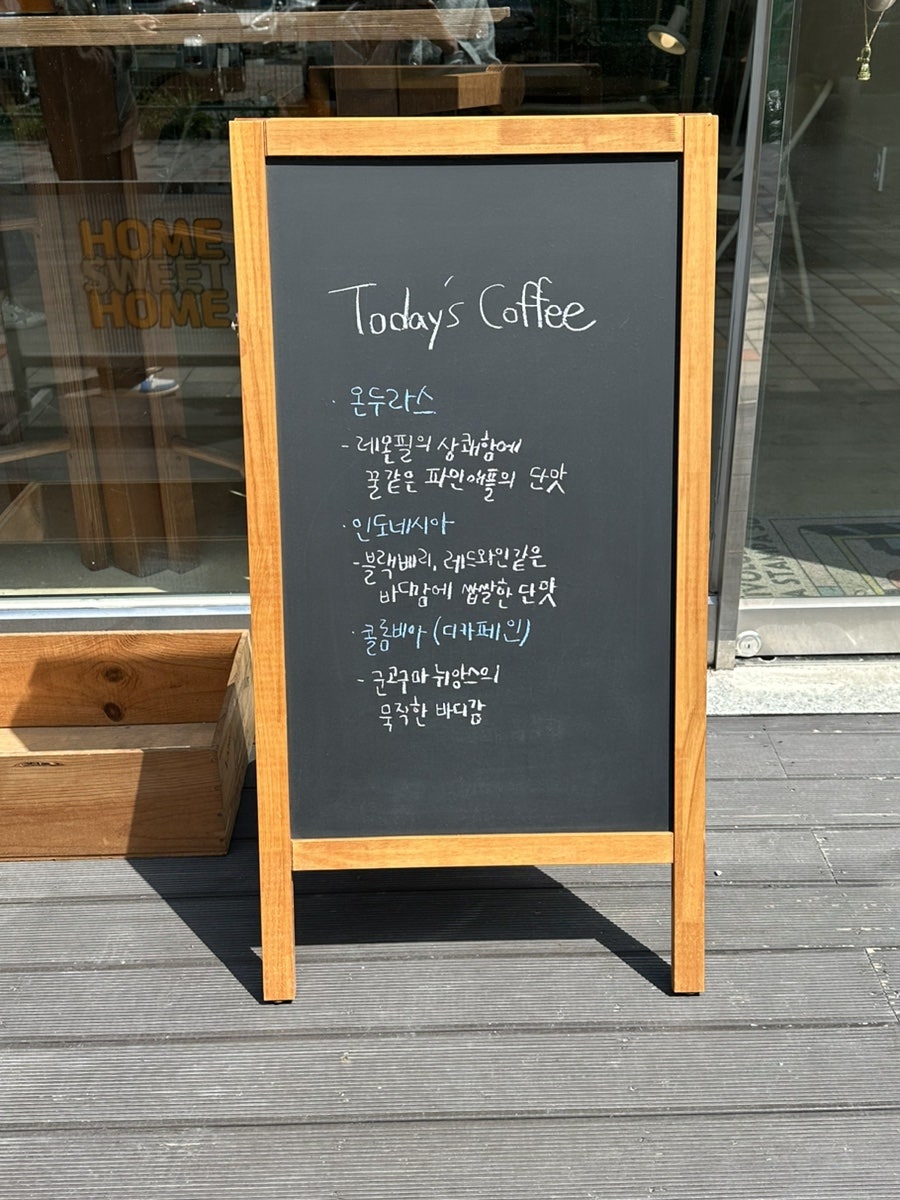 HOME
SWEET
HOME
Today's Coffee
· 온두라스
- 레몬필의 상쾌함에
꿀같은 파인애플의 단맛
· 인도네시아
- 블랙베리, 레드와인같은
바디감에 쌉쌀한 단맛
· 콜롬비아 (디카페인)
- 군고구마 뉘앙스의
묵직한 바디감